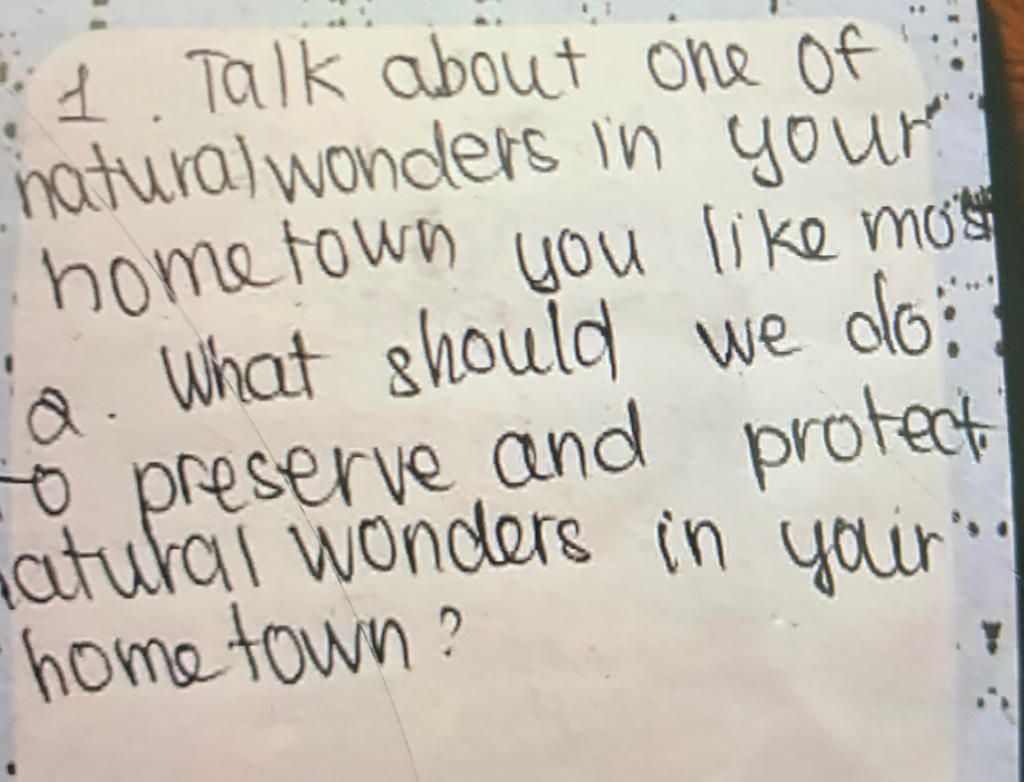 1. Talk about one of
natural wonders in your
hometown you like most
2. What should we do
to preserve and protect
natural wonders in your
hometown?